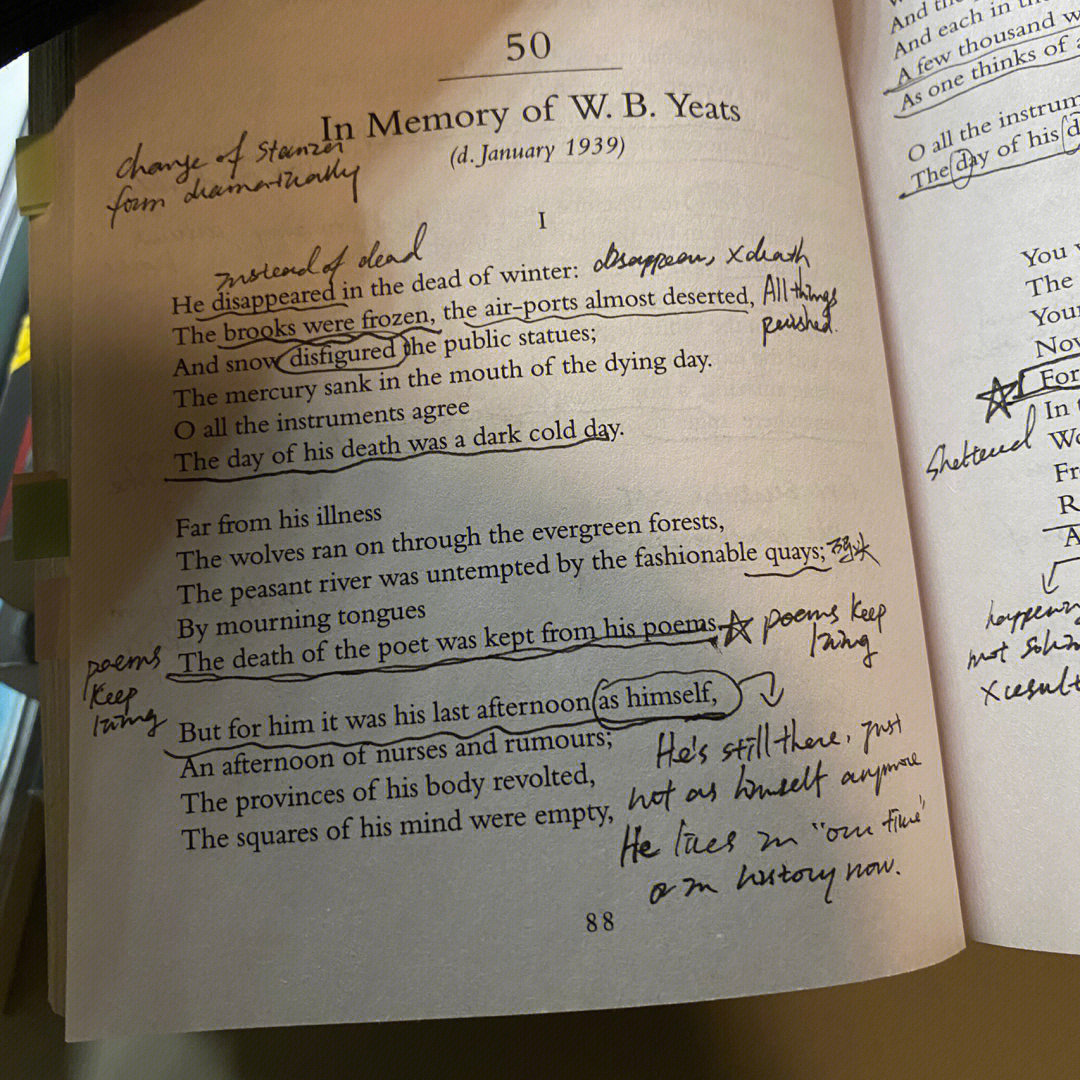 50
In Memory of W. B. Yeats
(d. January 1939)
change of Stanzer
form dramatically
I
instead of dead
He disappeared in the dead of winter: disappear, x death
The brooks were frozen, the air-ports almost deserted, All things
perished.
And snow disfigured the public statues;
The mercury sank in the mouth of the dying day.
O all the instruments agree
The day of his death was a dark cold day.
Far from his illness
The wolves ran on through the evergreen forests,
The peasant river was untempted by the fashionable quays;
By mourning tongues
The death of the poet was kept from his poems. poems keep
living
poems
keep
living
But for him it was his last afternoon as himself,
An afternoon of nurses and rumours;
The provinces of his body revolted,
The squares of his mind were empty,
He's still there, just
not as himself anymore
He lives in "our time"
or in history now.
88
And each in
A few thousand w
As one thinks of
O all the instrum
The day of his d
You
The
Your
Now
For
In
Sheltered
Fr
R
A
happening
not
x result